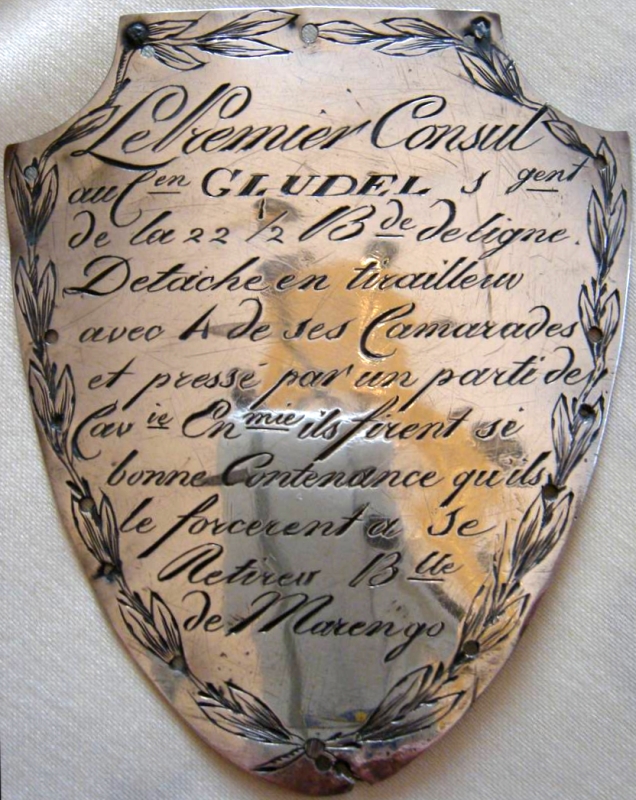 Le Premier Consul
au Cen GLUDEL sgent
de la 22 1/2 Bde de ligne.
Detaché en tirailleur
avec 4 de ses Camarades
et pressé par un parti de
Cavie Enmie ils firent si
bonne Contenance qu'ils
le forcerent a se
Retirer Blle
de Marengo